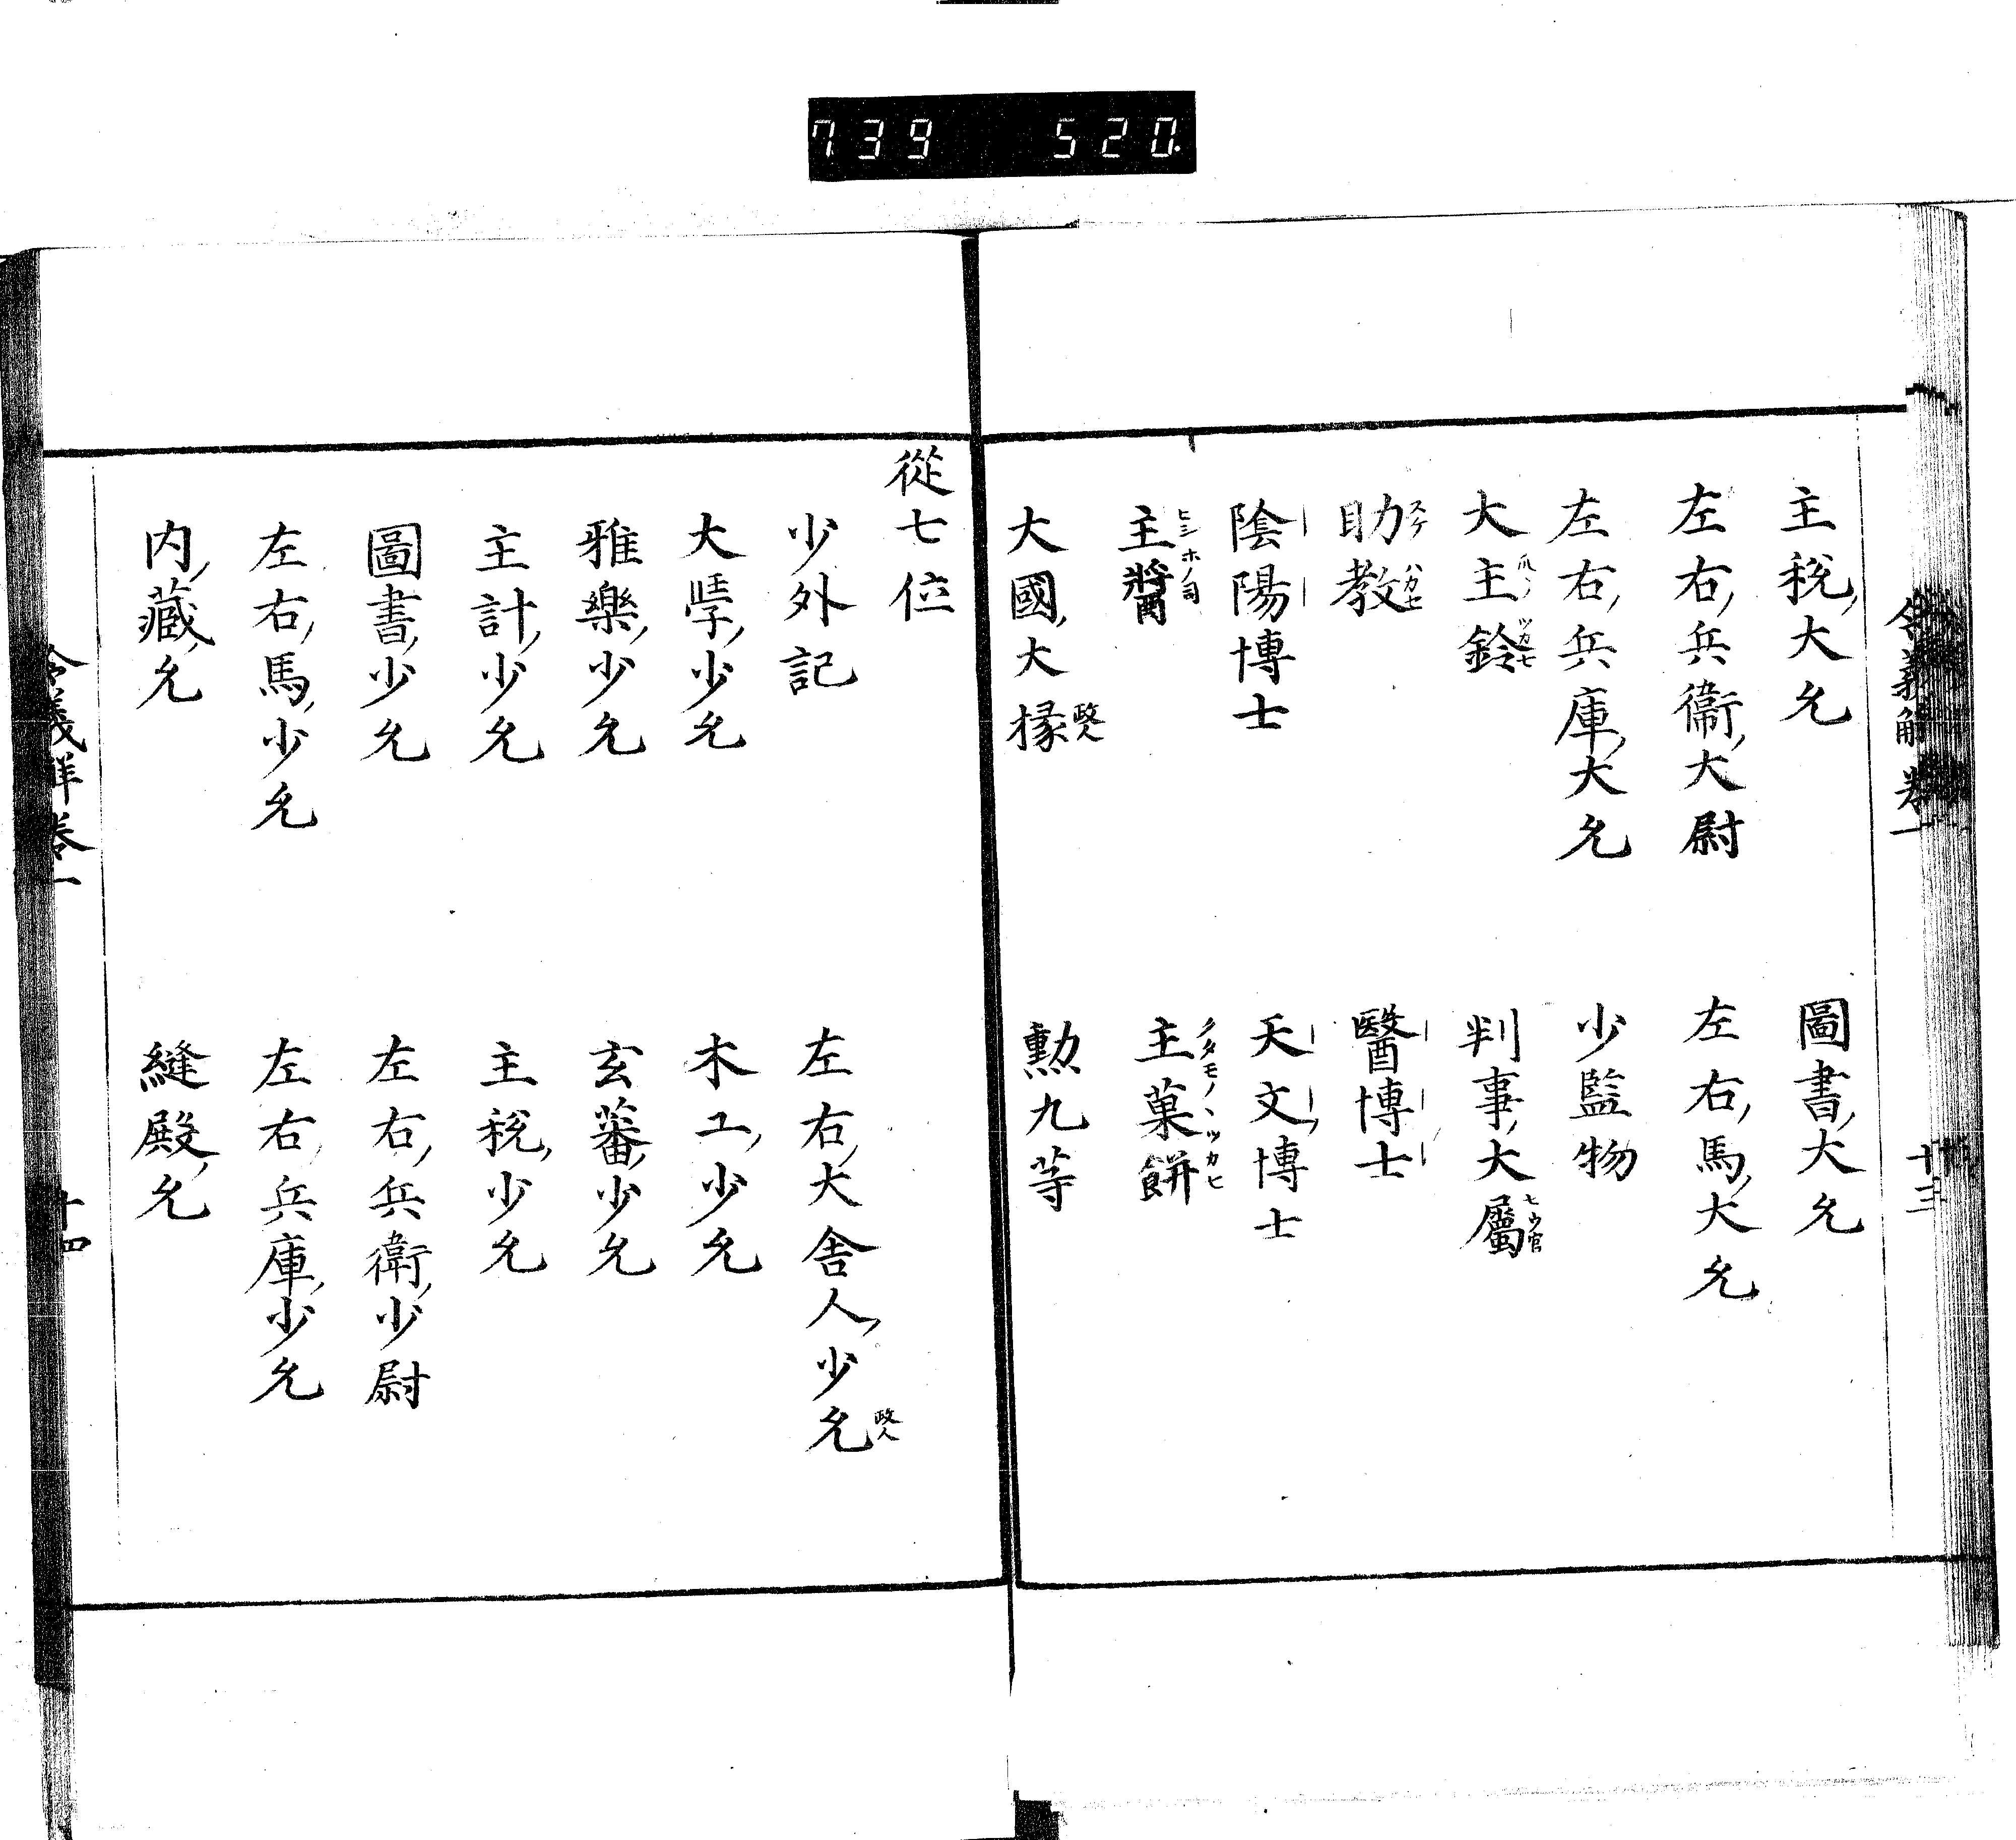 739 520.
令義解卷一 十三
主税大允 圖書大允
左右兵衞大尉 左右馬大允
左右兵庫大允 少監物
大主鈴 判事大屬
助教 醫博士
陰陽博士 天文博士
主醬 主菓餅
大國大掾 勲九等
從七位
少外記 左右大舍人少允
大學少允 木工少允
雅樂少允 玄蕃少允
主計少允 主税少允
圖書少允 左右兵衛少尉
左右馬少允 左右兵庫少允
内藏允 縫殿允
令義解卷一 十四